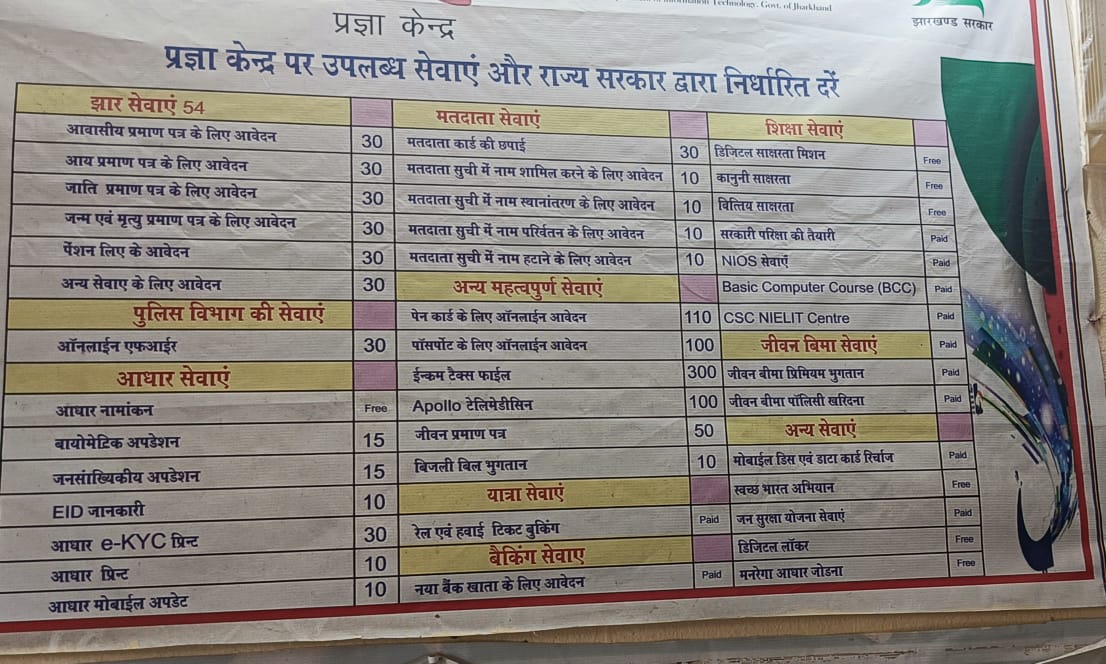 Information Technology, Govt. of Jharkhand
झारखण्ड सरकार
प्रज्ञा केन्द्र
प्रज्ञा केन्द्र पर उपलब्ध सेवाएं और राज्य सरकार द्वारा निर्धारित दरें
झार सेवाएं 54
आवासीय प्रमाण पत्र के लिए आवेदन 30
आय प्रमाण पत्र के लिए आवेदन 30
जाति प्रमाण पत्र के लिए आवेदन 30
जन्म एवं मृत्यु प्रमाण पत्र के लिए आवेदन 30
पेंशन लिए के आवेदन 30
अन्य सेवाए के लिए आवेदन 30
पुलिस विभाग की सेवाएं
ऑनलाईन एफआईर 30
आधार सेवाएं
आधार नामांकन Free
बायोमेटिक अपडेशन 15
जनसांख्यिकीय अपडेशन 15
EID जानकारी 10
आधार e-KYC प्रिन्ट 30
आधार प्रिन्ट 10
आधार मोबाईल अपडेट 10
मतदाता सेवाएं
मतदाता कार्ड की छपाई 30
मतदाता सुची में नाम शामिल करने के लिए आवेदन 10
मतदाता सुची में नाम स्थानांतरण के लिए आवेदन 10
मतदाता सुची में नाम परिर्वतन के लिए आवेदन 10
मतदाता सुची में नाम हटाने के लिए आवेदन 10
अन्य महत्वपुर्ण सेवाएं
पेन कार्ड के लिए ऑनलाईन आवेदन 110
पॉसर्पोट के लिए ऑनलाईन आवेदन 100
ईन्कम टैक्स फाईल 300
Apollo टेलिमेडीसिन 100
जीवन प्रमाण पत्र 50
बिजली बिल भुगतान 10
यात्रा सेवाएं
रेल एवं हवाई टिकट बुकिंग Paid
बैकिंग सेवाए
नया बैंक खाता के लिए आवेदन Paid
शिक्षा सेवाएं
डिजिटल साक्षरता मिशन Free
कानुनी साक्षरता Free
वित्तिय साक्षरता Free
सरकारी परिक्षा की तैयारी Paid
NIOS सेवाएँ Paid
Basic Computer Course (BCC) Paid
CSC NIELIT Centre Paid
जीवन बिमा सेवाएं Paid
जीवन बीमा प्रिमियम भुगतान Paid
जीवन बीमा पॉलिसी खरिदना Paid
अन्य सेवाएं
मोबाईल डिस एवं डाटा कार्ड रिर्चाज Paid
स्वच्छ भारत अभियान Free
जन सुरक्षा योजना सेवाएं Paid
डिजिटल लॉकर Free
मनरेगा आधार जोडना Free